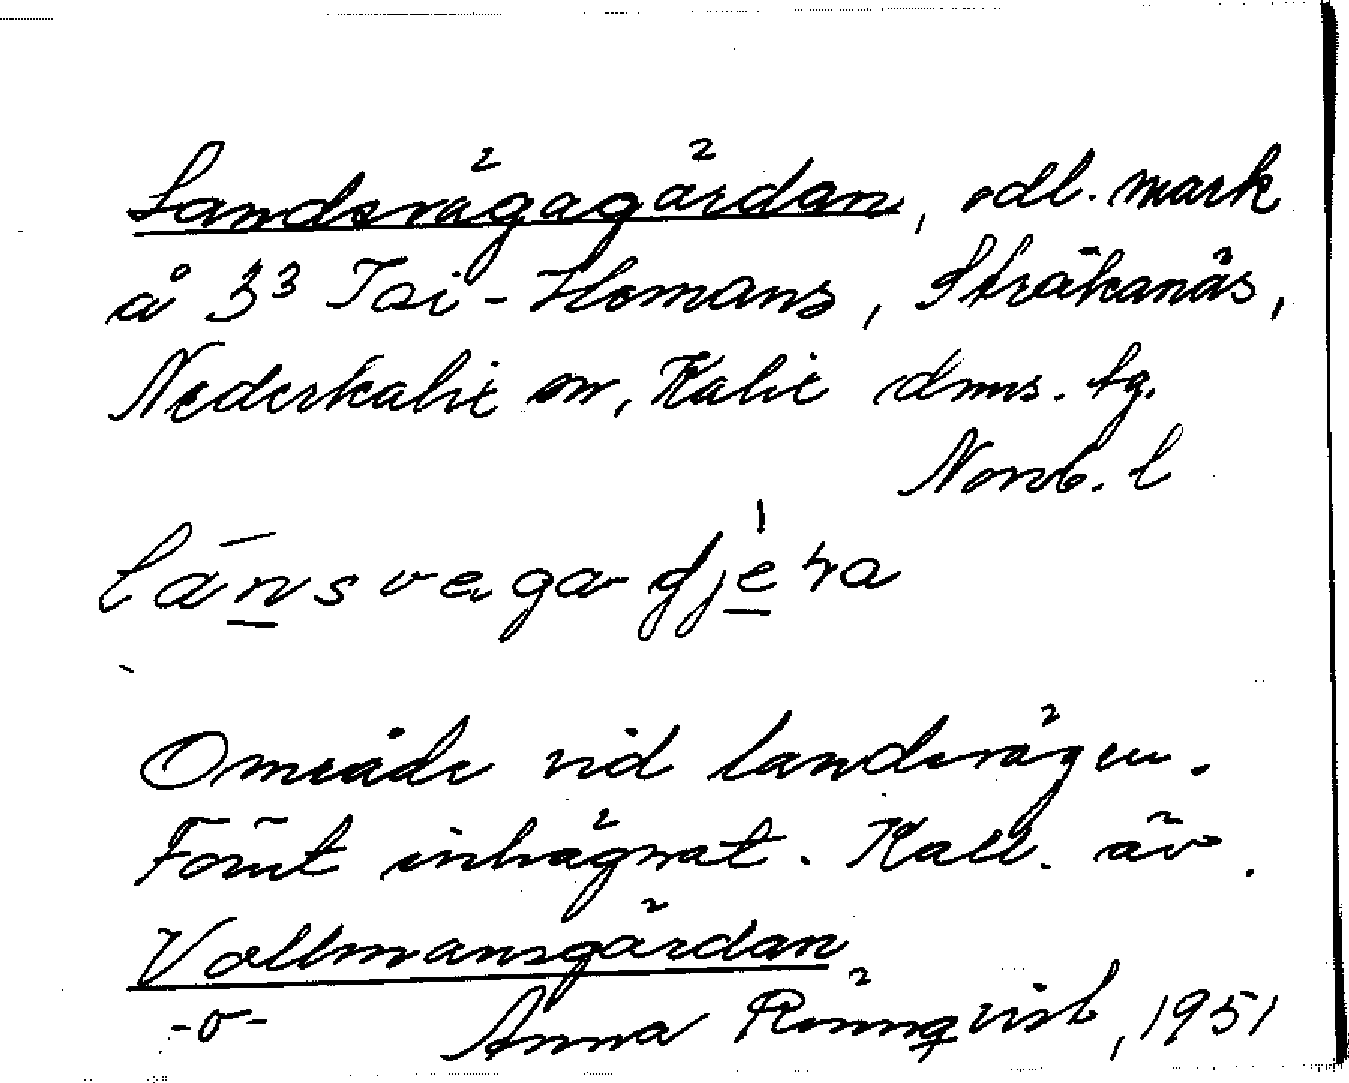 Landsvägagärdan, odl. mark
å 3³ Isi-Hemans, Stråkanäs,
Nederkalix sn, Kalix dmns. tg.
Norrb. l
länsvegagjeɽa
Område vid landsvägen.
Förut inhägnat. Kall. äv.
Vollmansgärdan
-o- Anna Rönnqvist, 1951